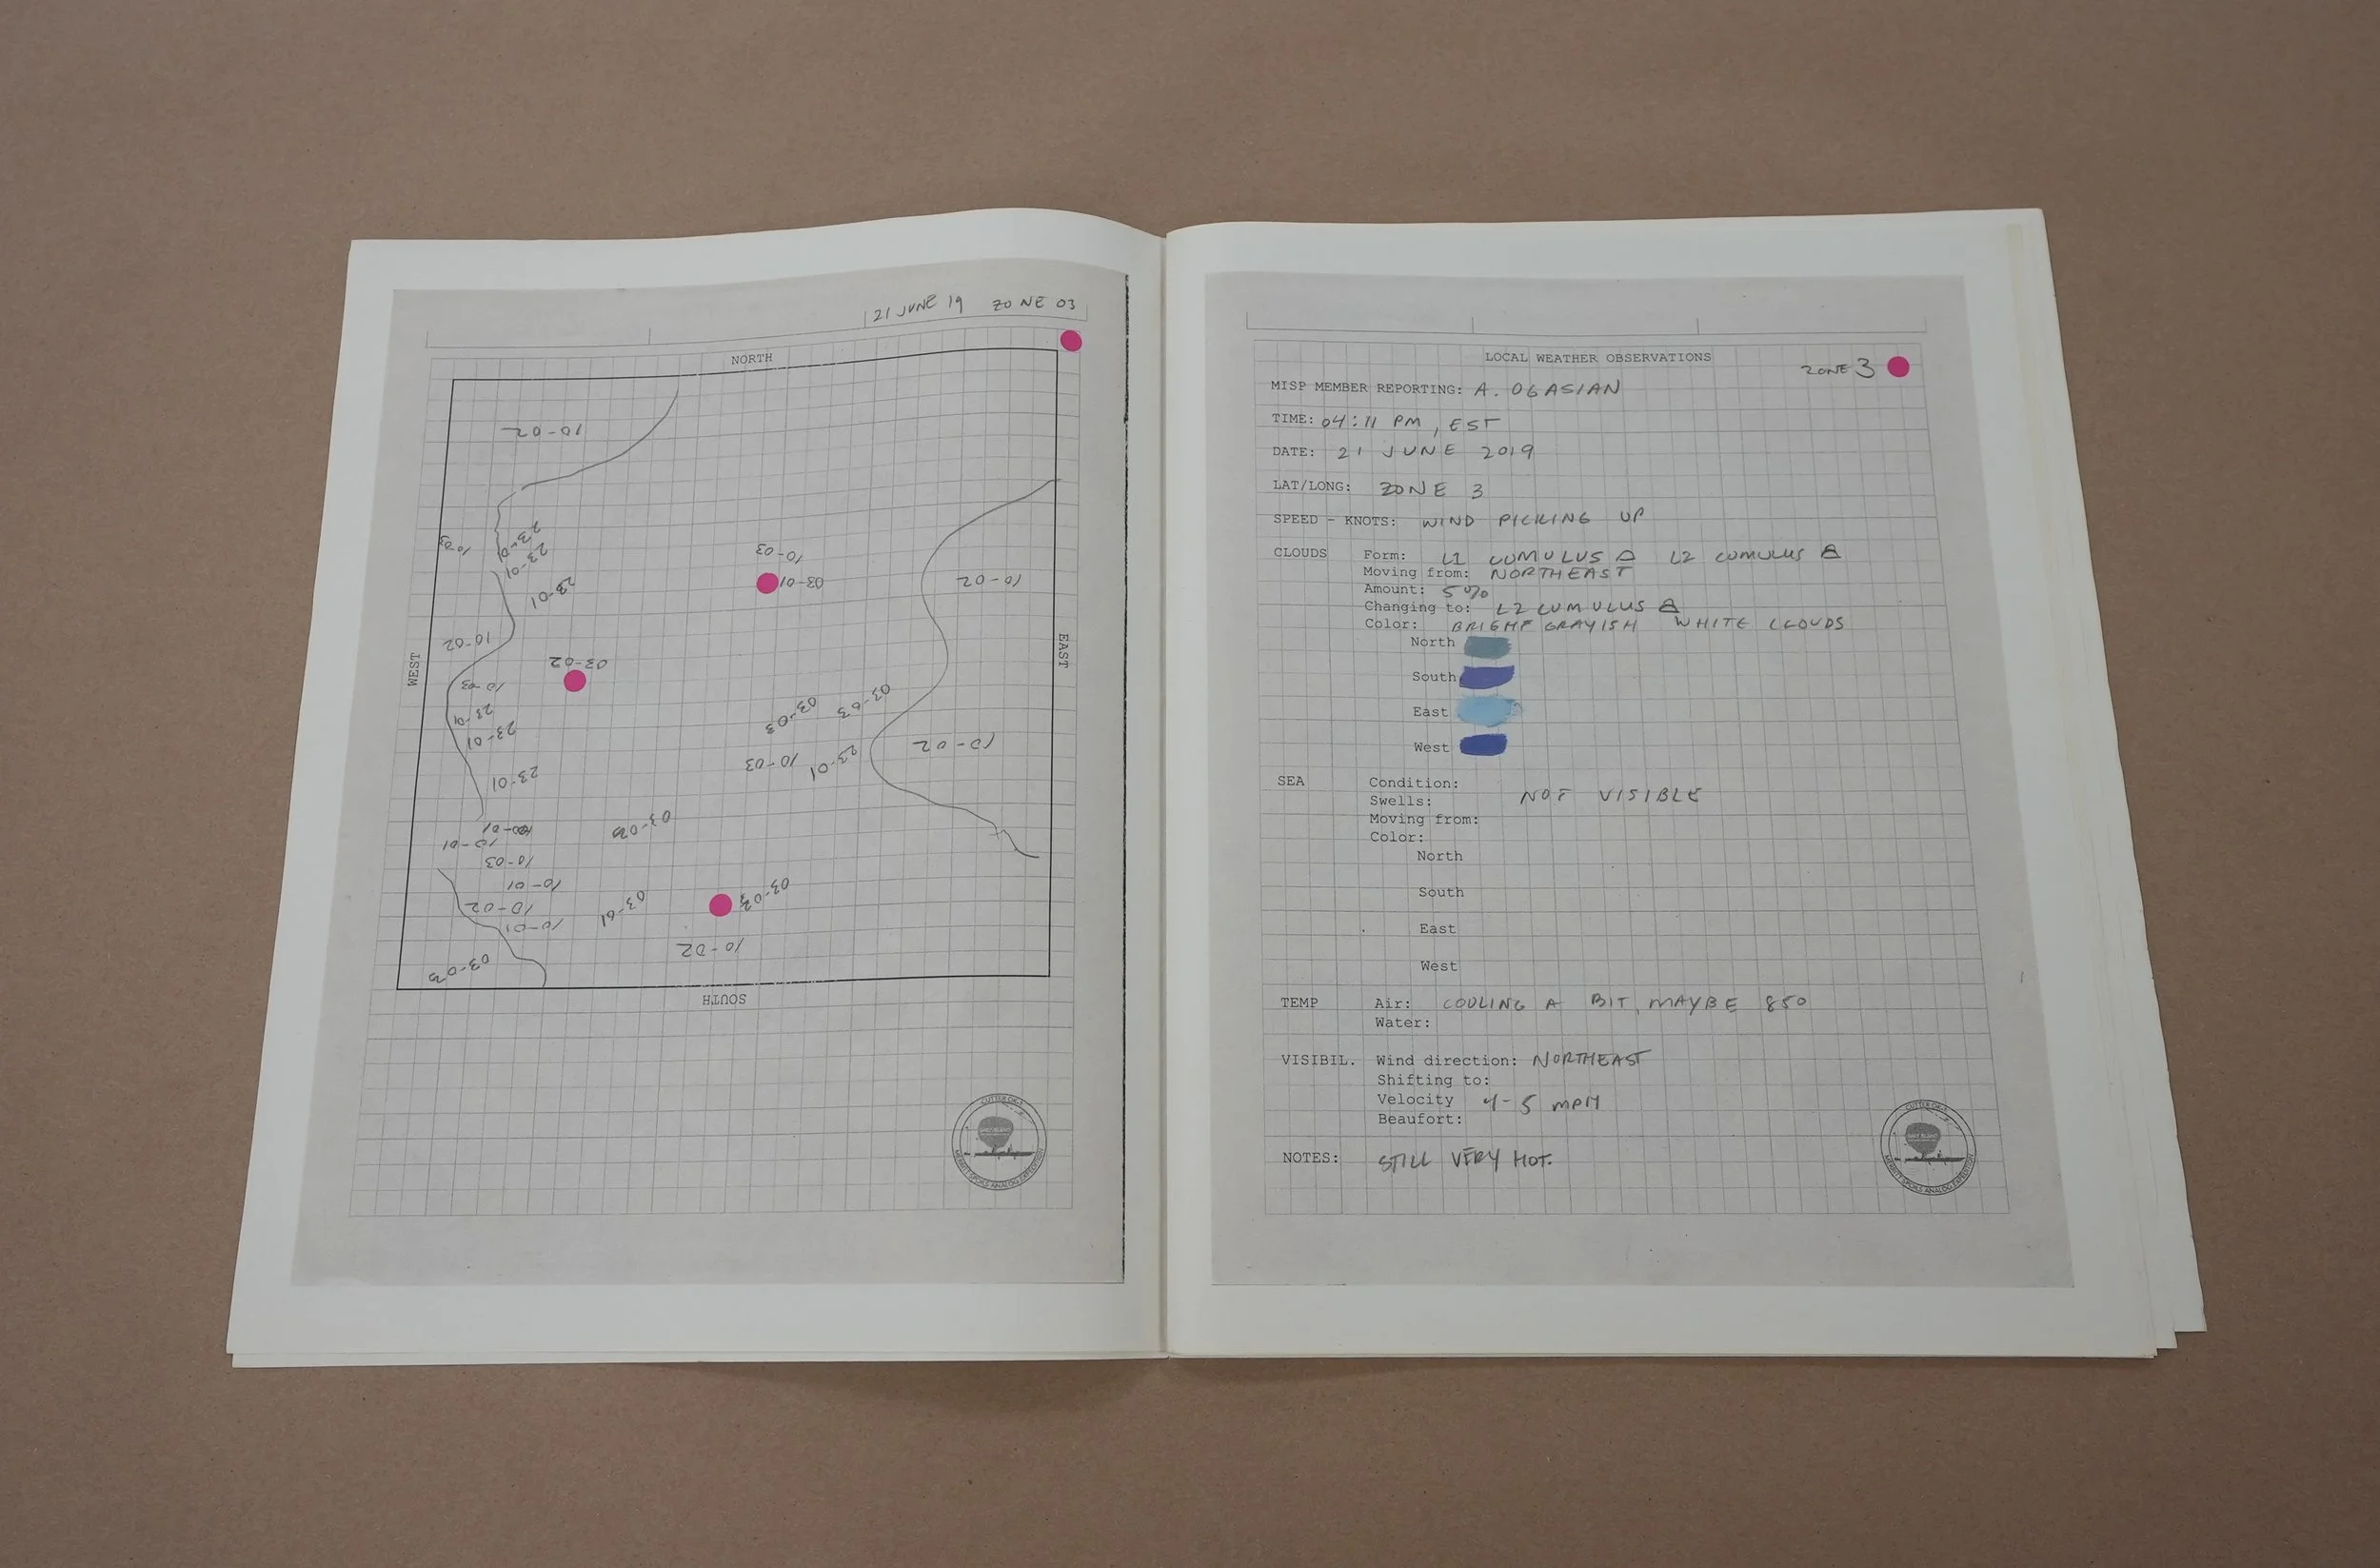 21 JUNE 19 ZONE 03
NORTH
10-02
23-01
23-01
10-03
23-01
10-03
03-01
10-02
10-02
03-02
WEST
EAST
10-03
23-01
23-01
03-03
03-03
10-02
10-03
23-01
23-01
03-03
10-01
10-01
10-03
10-01
10-02
10-01
03-01
10-02
03-03
SOUTH
CUTTER OK-1
MERRITT SPOILS ANALOG EXPEDITION
LOCAL WEATHER OBSERVATIONS
ZONE 3
MISP MEMBER REPORTING: A. OGASIAN
TIME: 04:11 PM, EST
DATE: 21 JUNE 2019
LAT/LONG: ZONE 3
SPEED - KNOTS: WIND PICKING UP
CLOUDS Form: L1 CUMULUS L2 CUMULUS
Moving from: NORTHEAST
Amount: 5%
Changing to: L2 CUMULUS
Color: BRIGHT GRAYISH WHITE CLOUDS
North
South
East
West
SEA Condition:
Swells: NOT VISIBLE
Moving from:
Color:
North
South
East
West
TEMP Air: COOLING A BIT, MAYBE 850
Water:
VISIBIL. Wind direction: NORTHEAST
Shifting to:
Velocity 4-5 MPH
Beaufort:
NOTES: STILL VERY HOT.
CUTTER OK-1
MERRITT SPOILS ANALOG EXPEDITION